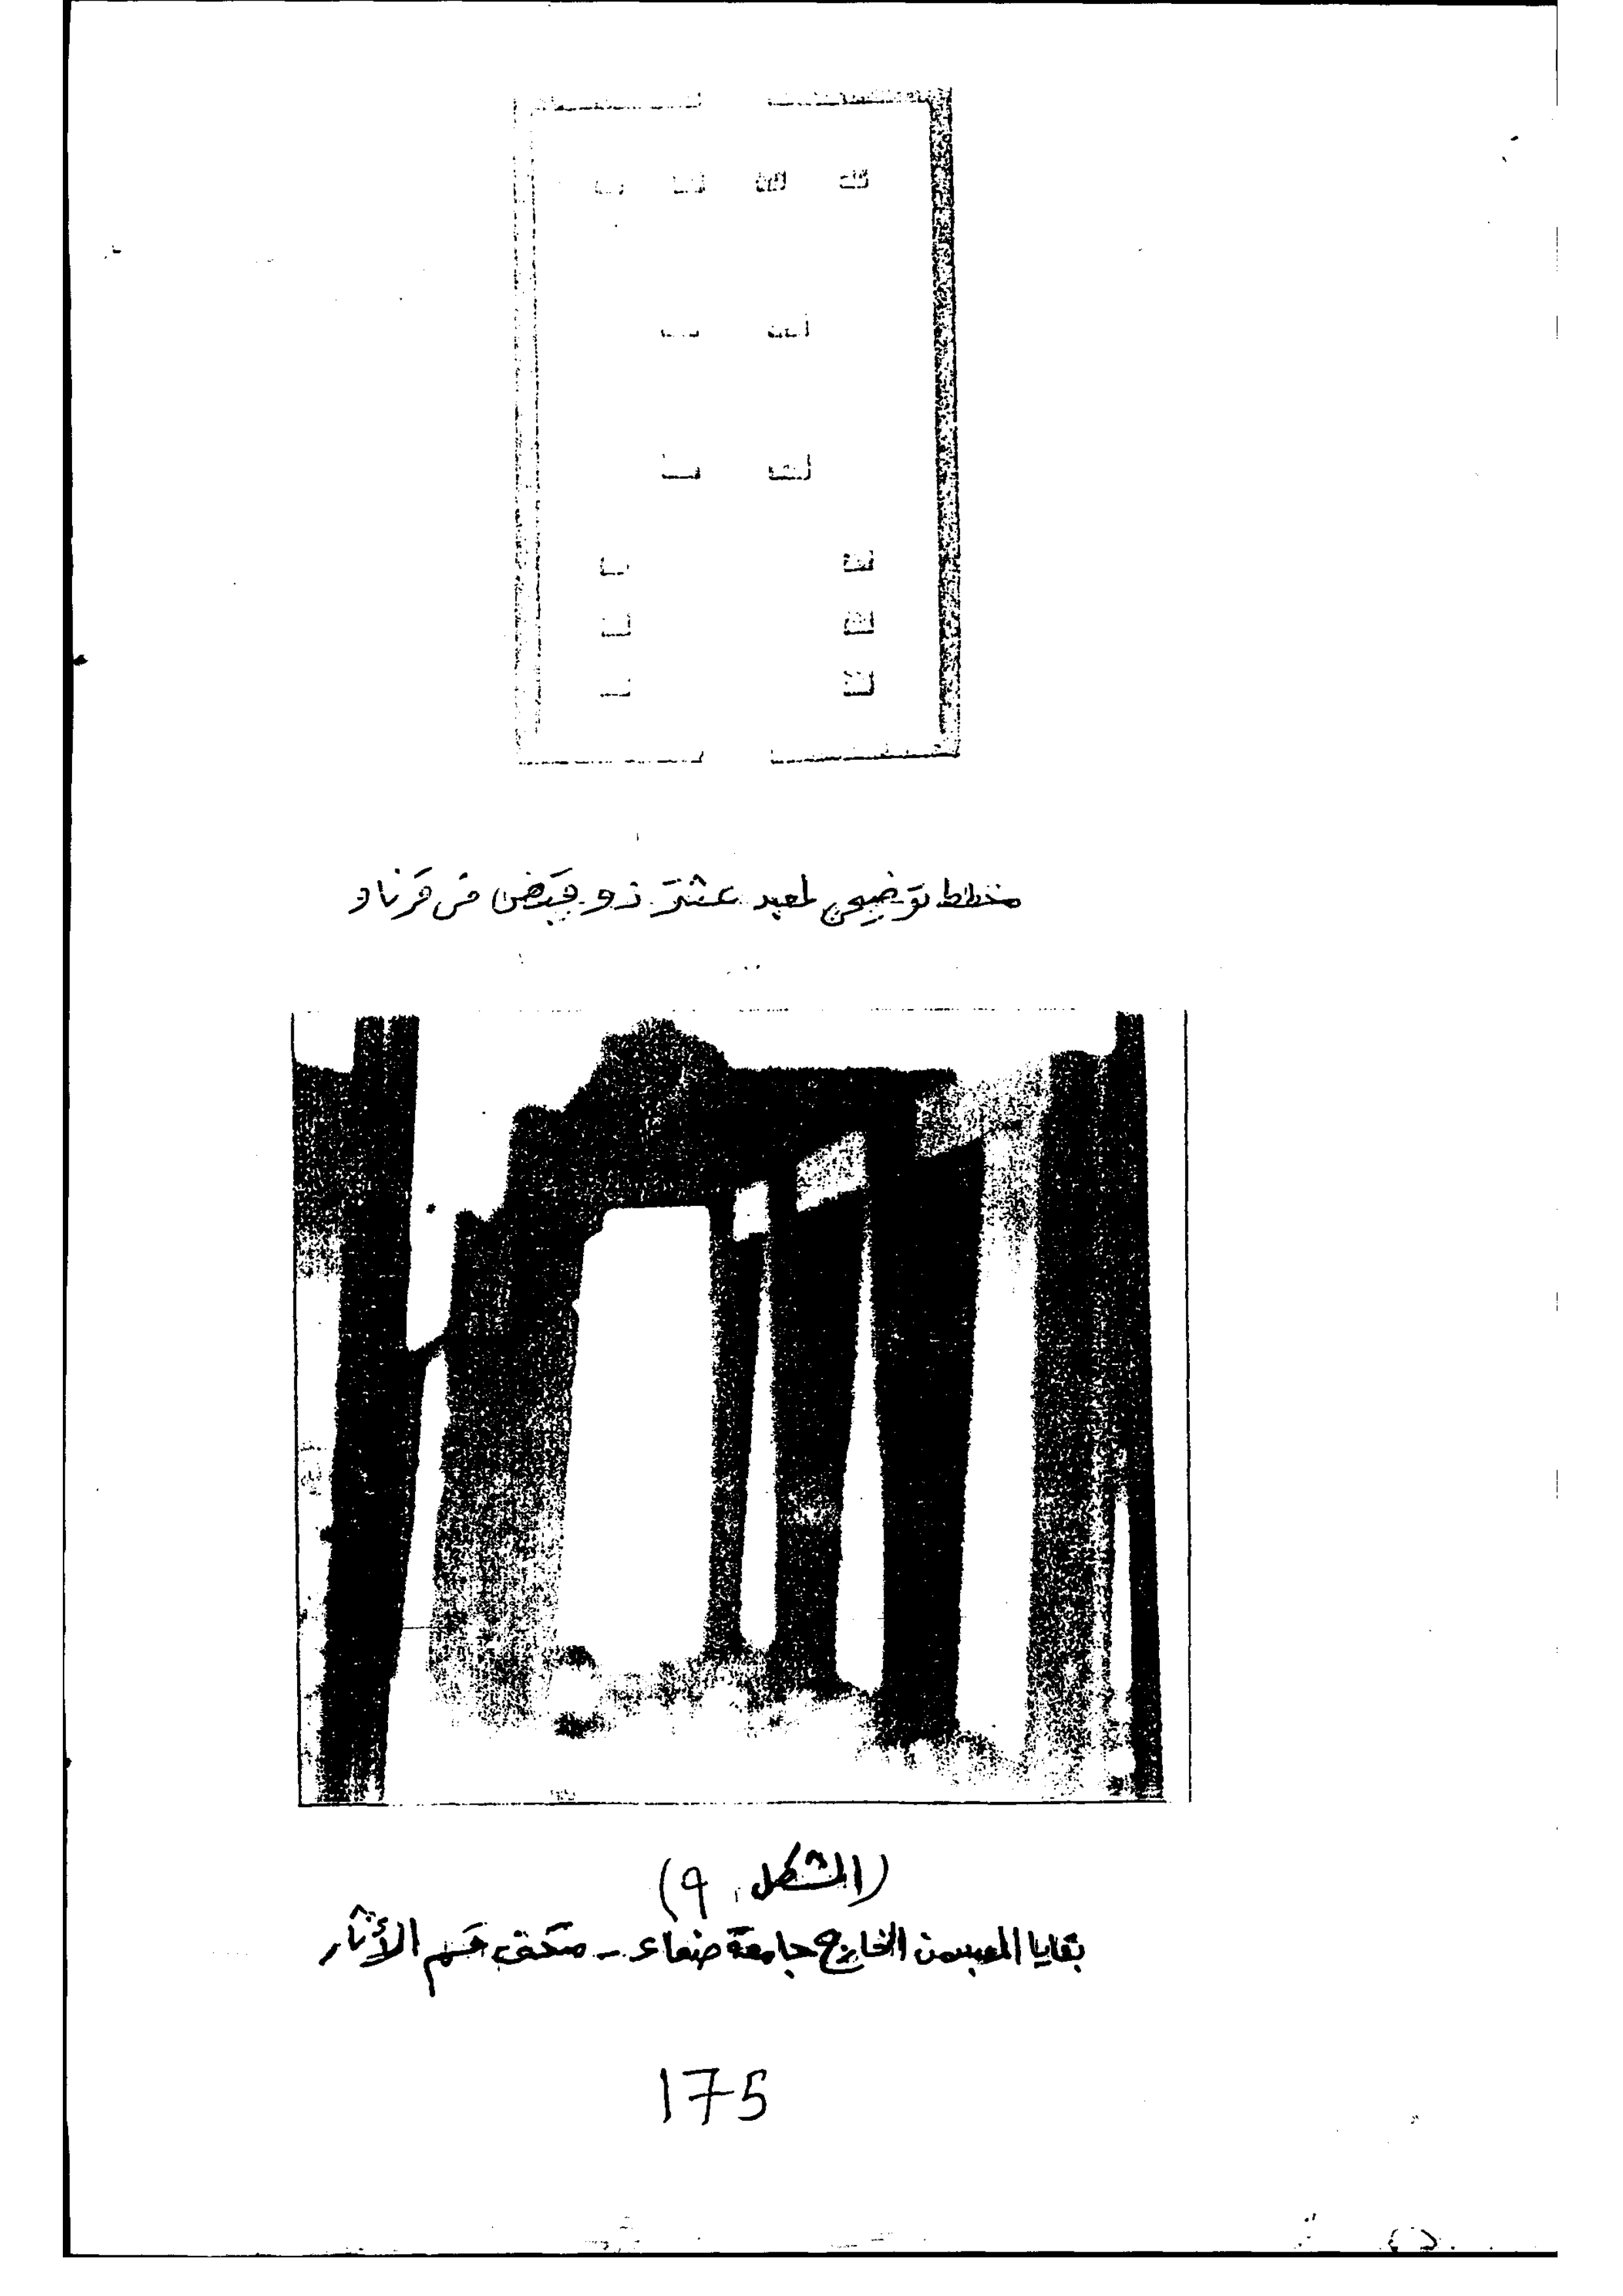 مخطط توضيحي لمعبد عشتر ذو قبض في قرناو
(الشكل ٩)
بقايا المعبد من الخارج جامعة صنعاء - متحف قسم الأثار
175